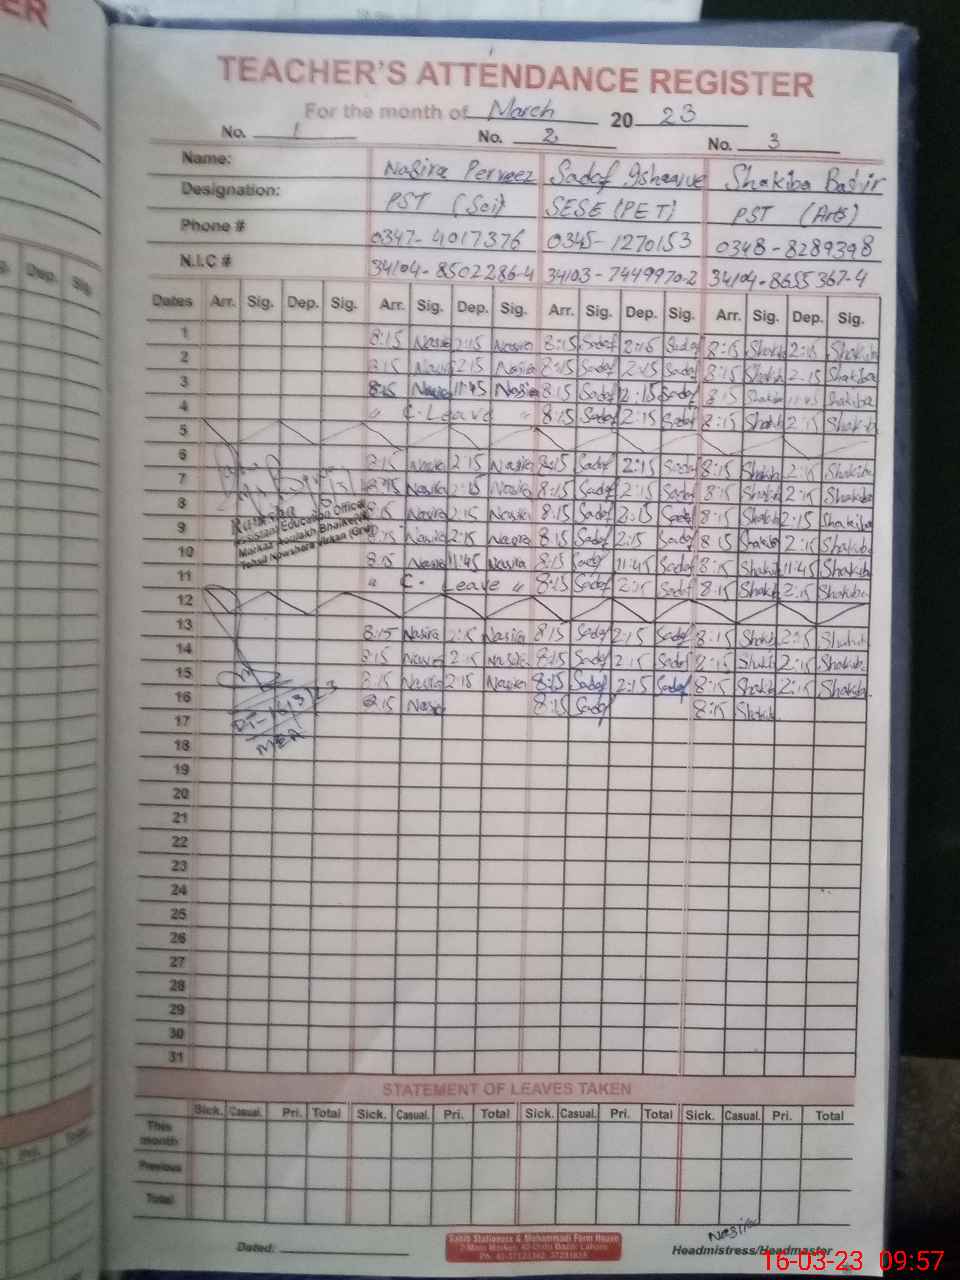 ER
TEACHER'S ATTENDANCE REGISTER
For the month of March 20 23
No. 1 No. 2 No. 3
Name: Nasira Perveez Sadaf Ishaque Shakiba Bashir
Designation: PST (Sci) SESE (PET) PST (Arts)
Phone # 0347-4017376 0345-1270153 0348-8289398
N.I.C # 34104-8502286-4 34103-7449970-2 34104-8655367-4
Dep.
Dates Arr. Sig. Dep. Sig. Arr. Sig. Dep. Sig. Arr. Sig. Dep. Sig. Arr. Sig. Dep. Sig.
1 8:15 Nasira 2:15 Nasira 8:15 Sadaf 2:15 Sadaf 8:15 Shakib 2:15 Shakiba
2 8:15 Nasira 2:15 Nasira 8:15 Sadaf 2:15 Sadaf 8:15 Shakib 2:15 Shakiba
3 8:15 Nasira 11:45 Nasira 8:15 Sadaf 2:15 Sadaf 8:15 Shakiba 11:45 Shakiba
4 " C. Leave " 8:15 Sadaf 2:15 Sadaf 8:15 Shakib 2:15 Shakib
5
6 8:15 Nasira 2:15 Nasira 8:15 Sadaf 2:15 Sadaf 8:15 Shakib 2:15 Shakiba
7 8:15 Nasira 2:15 Nasira 8:15 Sadaf 2:15 Sadaf 8:15 Shakib 2:15 Shakiba
8 8:15 Nasira 2:15 Nasira 8:15 Sadaf 2:15 Sadaf 8:15 Shakib 2:15 Shakiba
Assistant Education Officer
9 8:15 Nasira 2:15 Nasira 8:15 Sadaf 2:15 Sadaf 8:15 Shakiba 2:15 Shakiba
10 8:15 Nasira 11:45 Nasira 8:15 Sadaf 11:45 Sadaf 8:15 Shakib 11:45 Shakiba
11 " C. Leave " 8:15 Sadaf 2:15 Sadaf 8:15 Shakib 2:15 Shakiba
12
13 8:15 Nasira 2:15 Nasira 8:15 Sadaf 2:15 Sadaf 8:15 Shakib 2:15 Shakib
14 8:15 Nasira 2:15 Nasira 8:15 Sadaf 2:15 Sadaf 8:15 Shakib 2:15 Shakiba
15 8:15 Nasira 2:15 Nasira 8:15 Sadaf 2:15 Sadaf 8:15 Shakib 2:15 Shakiba
16 8:15 Nasir 8:15 Sadaf 8:15 Shakib
MEA
17
18
19
20
21
22
23
24
25
26
27
28
29
30
31
STATEMENT OF LEAVES TAKEN
Sick. Casual. Pri. Total Sick. Casual. Pri. Total Sick. Casual. Pri. Total Sick. Casual. Pri. Total
This month
Previous
Total
Nasira
Dated: Headmistress/Headmaster
16-03-23 09:57